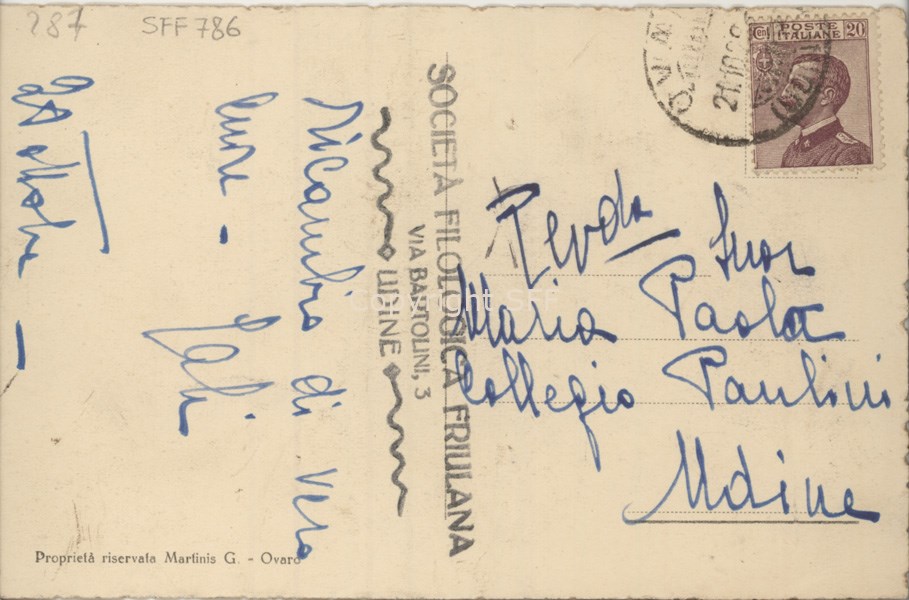 287
SFF 786
POSTE
ITALIANE
20
21.10
Ricambio di vero
cuore -
SOCIETÀ FILOLOGICA FRIULANA
VIA BARTOLINI, 3
UDINE
Revda Suor
Maria Paola
Collegio Paulini
Udine
Copyright SFF
Proprietà riservata Martinis G. - Ovaro